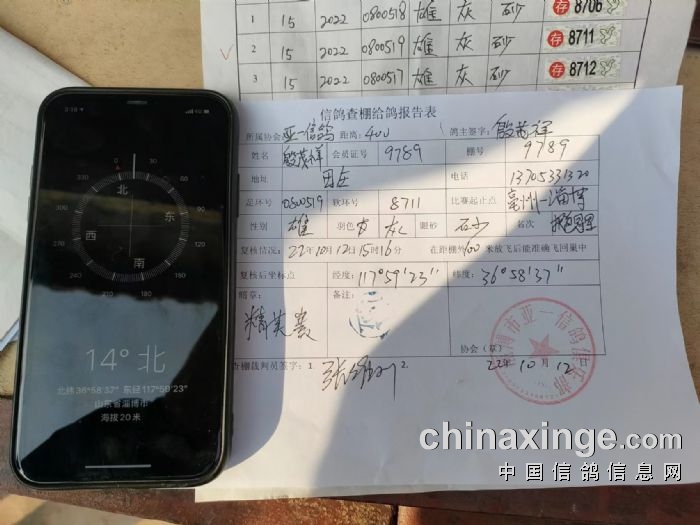 1 15 2022 0800518 雄 灰 砂 存 8706
2 15 2022 0800519 雄 灰 砂 存 8711
3 15 2022 0800517 雄 灰 砂 存 8712
信鸽查棚给鸽报告表
所属协会 亚一信鸽 距离：400 鸽主签字：殷茂祥
姓名 殷茂祥 会员证号 9789 棚号 9789
地址 田庄 电话 13705331320
足环号 0800519 软环号 8711 比赛起止点 亳州—淄博
性别 雄 羽色 灰 眼砂 砂 名次
复核情况：22年10月12日15时16分 在距棚外400米放飞后能准确飞回巢中
复核后坐标点 经度：117°59'23" 纬度：36°58'37"
赔章： 备注：
精英赛
协会（章）
22年10月12
查棚裁判员签字：1. 2.
3:16
北
东
南
西
0
30
60
120
150
180
210
240
300
330
14° 北
北纬36°58'37" 东经117°59'23"
山东省淄博市
海拔20米
chinaxinge.com
中国信鸽信息网